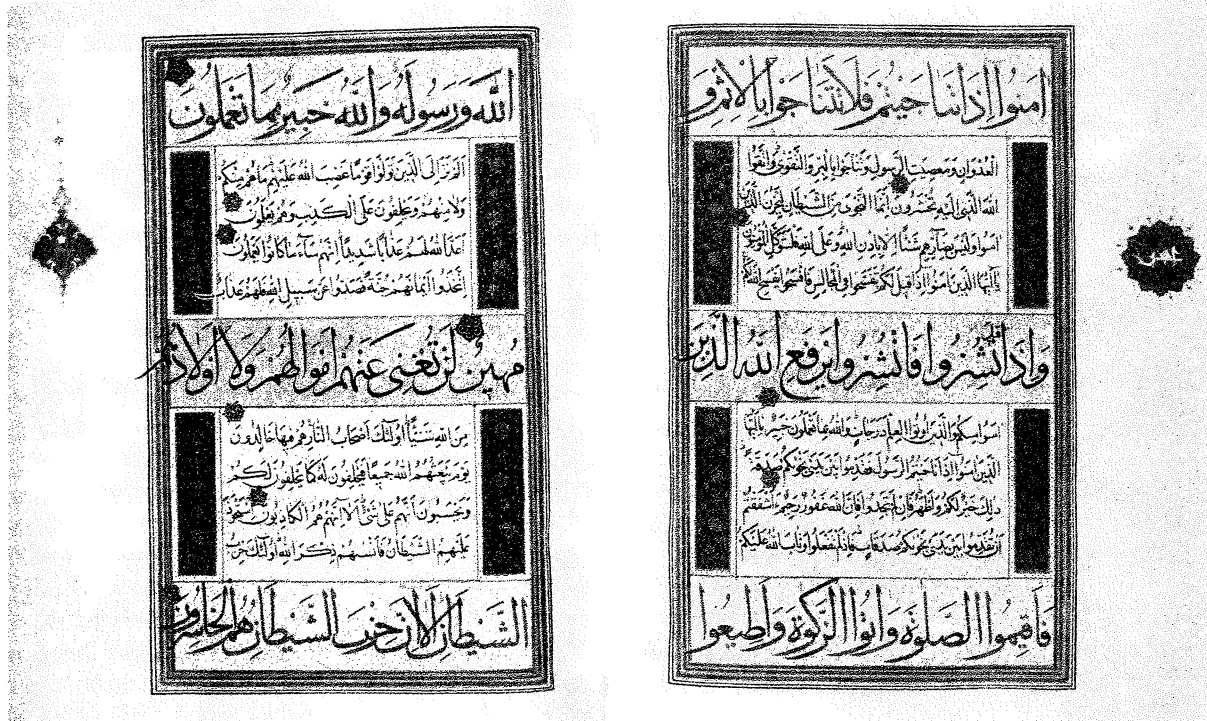 امنوا اذا تناجيتم فلا تتناجوا بالاثم و
العدوان ومعصيت الرسول وتناجوا بالبر والتقوى واتقوا
الله الذي اليه تحشرون انما النجوى من الشيطان ليحزن الذين
امنوا وليس بضارهم شيئا الا باذن الله وعلى الله فليتوكل المؤمنون
يا ايها الذين امنوا اذا قيل لكم تفسحوا في المجالس فافسحوا يفسح الله لكم
واذا قيل انشزوا فانشزوا يرفع الله الذين
امنوا منكم والذين اوتوا العلم درجات والله بما تعملون خبير يا ايها
الذين امنوا اذا ناجيتم الرسول فقدموا بين يدي نجويكم صدقة
ذلك خير لكم واطهر فان لم تجدوا فان الله غفور رحيم ءاشفقتم
ان تقدموا بين يدي نجويكم صدقات فاذ لم تفعلوا وتاب الله عليكم
فاقيموا الصلوة واتوا الزكوة واطيعوا
الله ورسوله والله خبير بما تعملون
الم تر الى الذين تولوا قوما غضب الله عليهم ما هم منكم
ولا منهم ويحلفون على الكذب وهم يعلمون
اعد الله لهم عذابا شديدا انهم ساء ما كانوا يعملون
اتخذوا ايمانهم جنة فصدوا عن سبيل الله فلهم عذاب
مهين لن تغني عنهم اموالهم ولا اولادهم
من الله شيئا اولئك اصحاب النار هم فيها خالدون
يوم يبعثهم الله جميعا فيحلفون له كما يحلفون لكم
ويحسبون انهم على شيء الا انهم هم الكاذبون استحوذ
عليهم الشيطان فانسيهم ذكر الله اولئك حزب
الشيطان الا ان حزب الشيطان هم الخاسرون